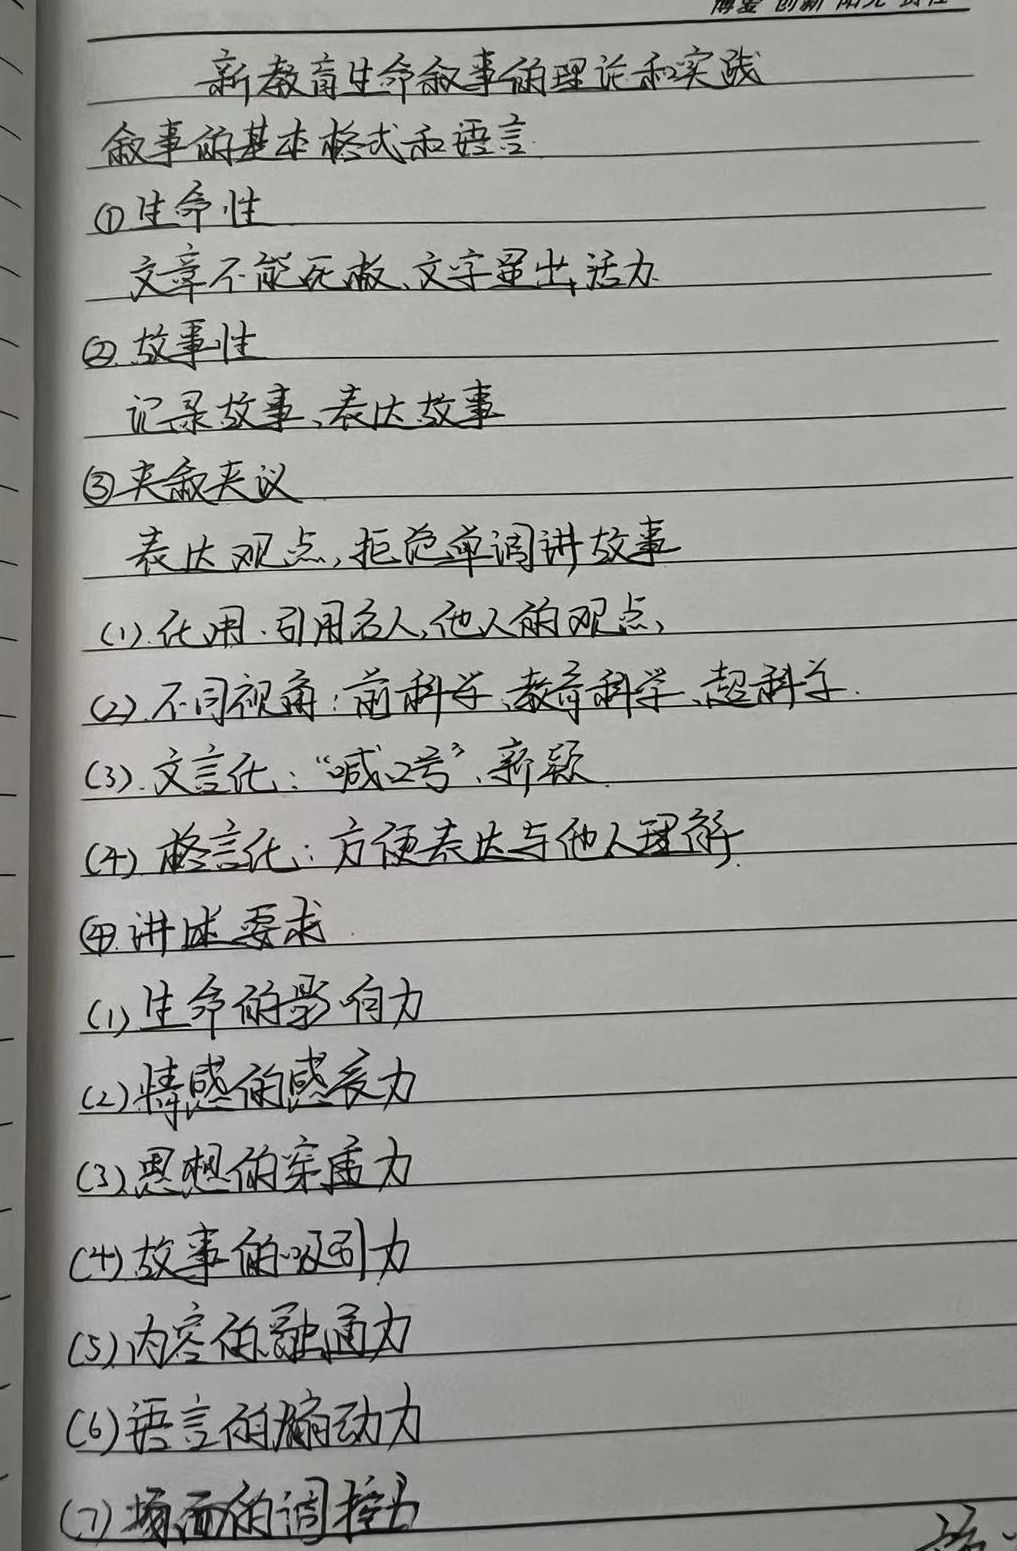 新教育生命叙事的理论和实践
叙事的基本格式和语言
①生命性
文章不能死板、文字显出活力
②故事性
记录故事、表达故事
③夹叙夹议
表达观点,拒绝单调讲故事
(1).化用.引用名人,他人的观点,
(2).不同视角:前科学、教育科学、超科学.
(3).文言化:“喊口号”、新颖
(4)格言化:方便表达与他人理解.
④讲述要求
(1)生命的影响力
(2)情感的感受力
(3)思想的穿透力
(4)故事的吸引力
(5)内容的融通力
(6)语言的煽动力
(7)场面的调控力